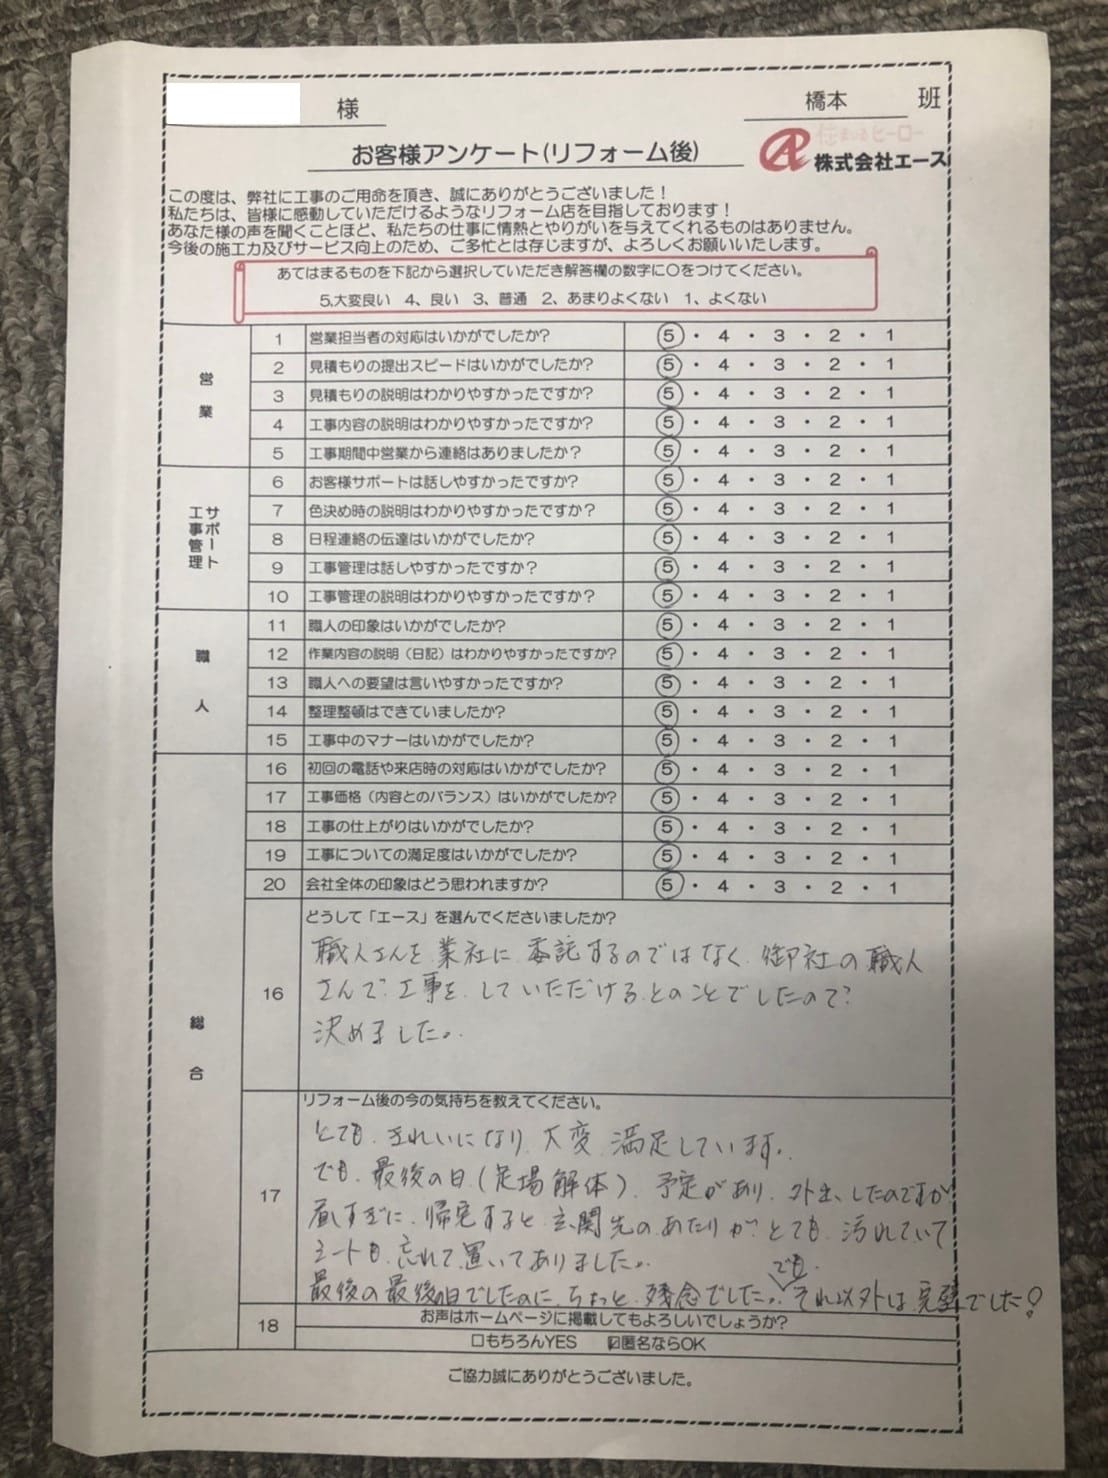 様
橋本 班
お客様アンケート(リフォーム後)
住まいるヒーロー
株式会社エース
この度は、弊社に工事のご用命を頂き、誠にありがとうございました!
私たちは、皆様に感動していただけるようなリフォーム店を目指しております!
あなた様の声を聞くことほど、私たちの仕事に情熱とやりがいを与えてくれるものはありません。
今後の施工力及びサービス向上のため、ご多忙とは存じますが、よろしくお願いいたします。
あてはまるものを下記から選択していただき解答欄の数字に○をつけてください。
5,大変良い 4、良い 3、普通 2、あまりよくない 1、よくない
営業
1 営業担当者の対応はいかがでしたか? 5・4・3・2・1
2 見積もりの提出スピードはいかがでしたか? 5・4・3・2・1
3 見積もりの説明はわかりやすかったですか? 5・4・3・2・1
4 工事内容の説明はわかりやすかったですか? 5・4・3・2・1
5 工事期間中営業から連絡はありましたか? 5・4・3・2・1
サポート
工事管理
6 お客様サポートは話しやすかったですか? 5・4・3・2・1
7 色決め時の説明はわかりやすかったですか? 5・4・3・2・1
8 日程連絡の伝達はいかがでしたか? 5・4・3・2・1
9 工事管理は話しやすかったですか? 5・4・3・2・1
10 工事管理の説明はわかりやすかったですか? 5・4・3・2・1
職人
11 職人の印象はいかがでしたか? 5・4・3・2・1
12 作業内容の説明(日記)はわかりやすかったですか? 5・4・3・2・1
13 職人への要望は言いやすかったですか? 5・4・3・2・1
14 整理整頓はできていましたか? 5・4・3・2・1
15 工事中のマナーはいかがでしたか? 5・4・3・2・1
総合
16 初回の電話や来店時の対応はいかがでしたか? 5・4・3・2・1
17 工事価格(内容とのバランス)はいかがでしたか? 5・4・3・2・1
18 工事の仕上がりはいかがでしたか? 5・4・3・2・1
19 工事についての満足度はいかがでしたか? 5・4・3・2・1
20 会社全体の印象はどう思われますか? 5・4・3・2・1
16 どうして「エース」を選んでくださいましたか?
職人さんを業社に委託するのではなく御社の職人
さんで工事をしていただけるとのことでしたので?
決めました。
17 リフォーム後の今の気持ちを教えてください。
とてもきれいになり大変満足しています。
でも最後の日(足場解体)予定があり外出したのですが
昼すぎに帰宅すると玄関先のあたりがとても汚れていて
シートも忘れて置いてありました。
最後の最後の日でしたのにちょっと残念でした。でもそれ以外は完璧でした!
18 お声はホームページに掲載してもよろしいでしょうか?
□もちろんYES ☑匿名ならOK
ご協力誠にありがとうございました。